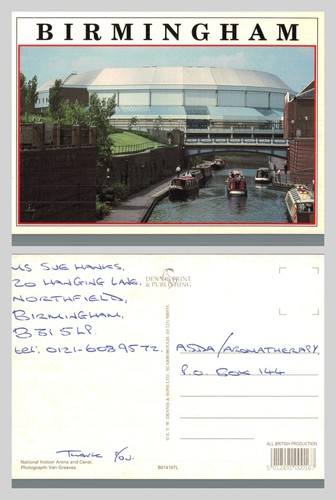 BIRMINGHAM
MS SUE HANKS,
20 HANGING LANE,
NORTHFIELD,
BIRMINGHAM,
B31 5LP.
tel: 0121-6089572.
THANK YOU.
National Indoor Arena and Canal.
Photograph: Van Greaves
DENNIS PRINT
& PUBLISHING
B014167L
ASDA/AROMATHERAPY
P.O. BOX 144
ALL BRITISH PRODUCTION